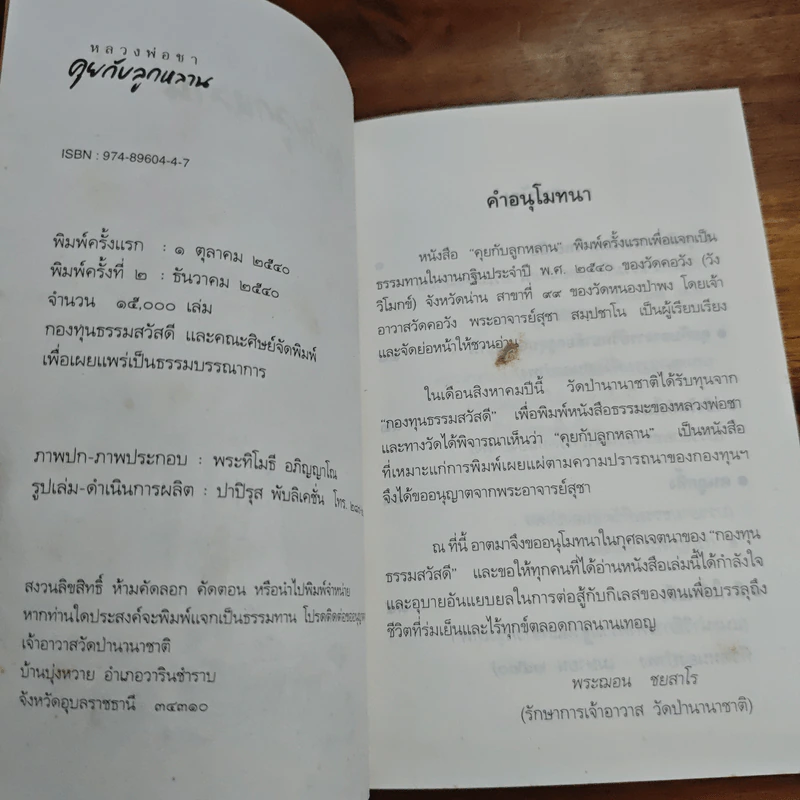 หลวงพ่อชา
คุยกับลูกหลาน
ISBN : 974-89604-4-7
พิมพ์ครั้งแรก : ๑ ตุลาคม ๒๕๔๐
พิมพ์ครั้งที่ ๒ : ธันวาคม ๒๕๔๐
จำนวน ๑๕,๐๐๐ เล่ม
กองทุนธรรมสวัสดี และคณะศิษย์จัดพิมพ์
เพื่อเผยแพร่เป็นธรรมบรรณาการ
ภาพปก-ภาพประกอบ : พระทิโมธี อภิญญาโณ
รูปเล่ม-ดำเนินการผลิต : ปาปิรุส พับลิเคชั่น โทร.
สงวนลิขสิทธิ์ ห้ามคัดลอก ตัดตอน หรือนำไปพิมพ์จำหน่าย
หากท่านใดประสงค์จะพิมพ์แจกเป็นธรรมทาน โปรดติดต่อ
เจ้าอาวาสวัดป่านานาชาติ
บ้านบุ่งหวาย อำเภอวารินชำราบ
จังหวัดอุบลราชธานี ๓๔๓๑๐
คำอนุโมทนา
หนังสือ "คุยกับลูกหลาน" พิมพ์ครั้งแรกเพื่อแจกเป็น
ธรรมทานในงานกฐินประจำปี พ.ศ. ๒๕๔๐ ของวัดคอวัง (วัง
วิโมกข์) จังหวัดน่าน สาขาที่ ๙๙ ของวัดหนองป่าพง โดยเจ้า
อาวาสวัดคอวัง พระอาจารย์สุชา สมฺปชาโน เป็นผู้เรียบเรียง
และจัดย่อหน้าให้ชวนอ่าน
ในเดือนสิงหาคมปีนี้ วัดป่านานาชาติได้รับทุนจาก
"กองทุนธรรมสวัสดี" เพื่อพิมพ์หนังสือธรรมะของหลวงพ่อชา
และทางวัดได้พิจารณาเห็นว่า "คุยกับลูกหลาน" เป็นหนังสือ
ที่เหมาะแก่การพิมพ์เผยแผ่ตามความปรารถนาของกองทุนฯ
จึงได้ขออนุญาตจากพระอาจารย์สุชา
ณ ที่นี้ อาตมาจึงขออนุโมทนาในกุศลเจตนาของ "กองทุน
ธรรมสวัสดี" และขอให้ทุกคนที่ได้อ่านหนังสือเล่มนี้ได้กำลังใจ
และอุบายอันแยบยลในการต่อสู้กับกิเลสของตนเพื่อบรรลุถึง
ชีวิตที่ร่มเย็นและไร้ทุกข์ตลอดกาลนานเทอญ
พระฌอน ชยสาโร
(รักษาการเจ้าอาวาส วัดป่านานาชาติ)